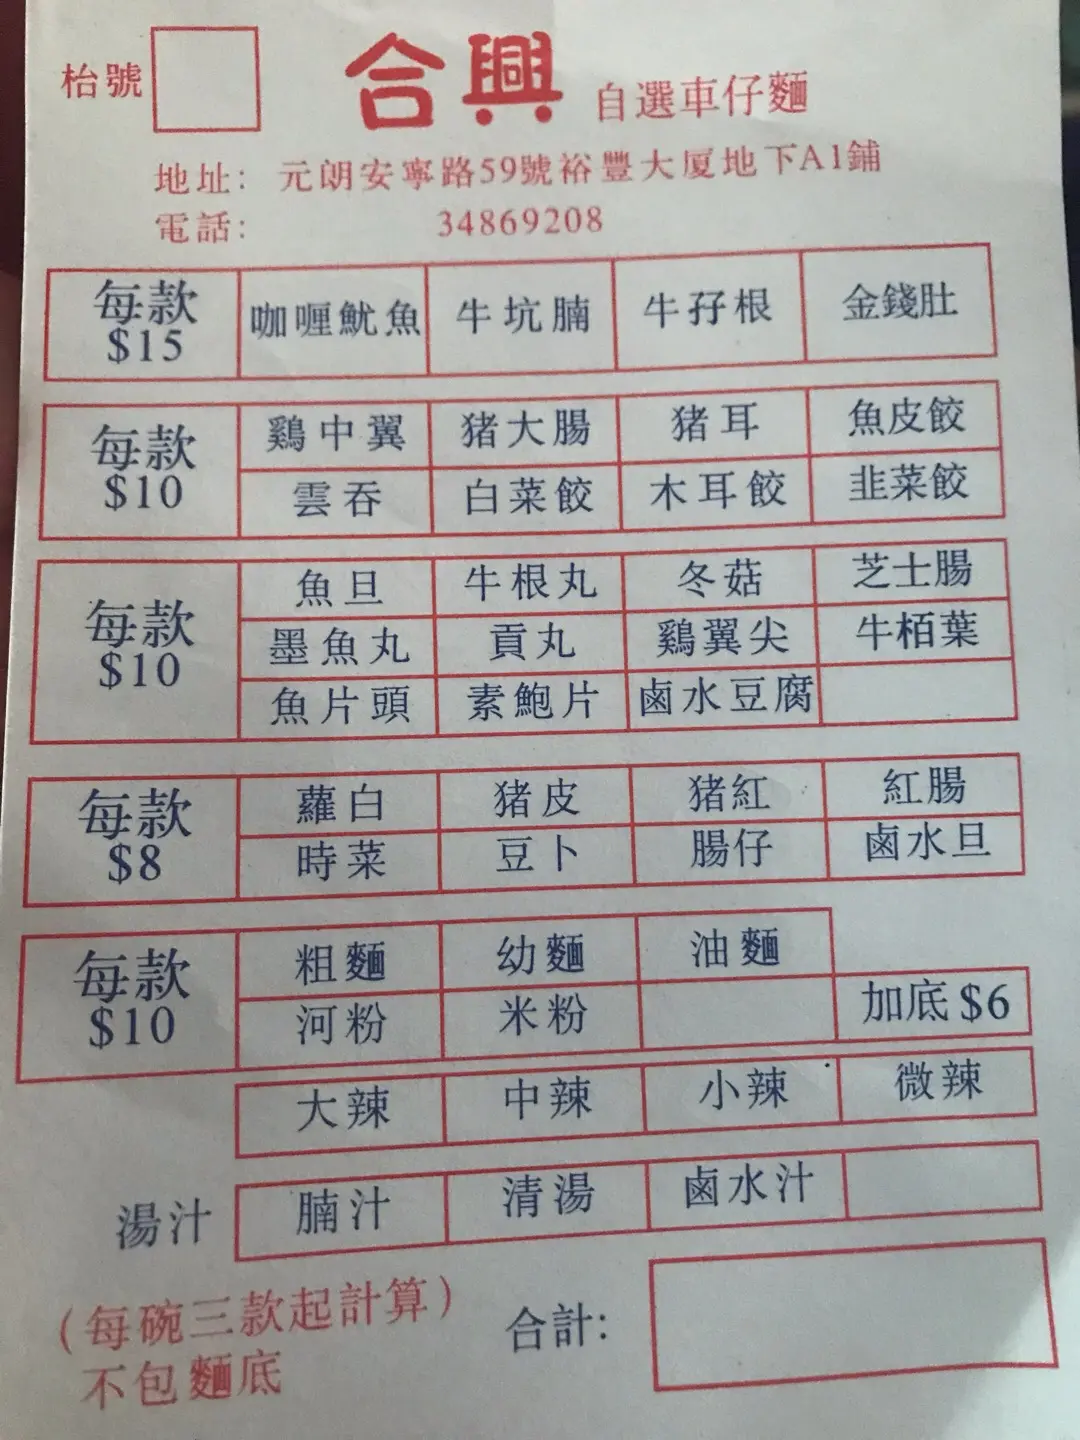 枱號
合興 自選車仔麵
地址: 元朗安寧路59號裕豐大厦地下A1鋪
電話: 34869208
每款 $15
咖喱魷魚 牛坑腩 牛孖根 金錢肚
每款 $10
鷄中翼 猪大腸 猪耳 魚皮餃
雲吞 白菜餃 木耳餃 韭菜餃
每款 $10
魚旦 牛根丸 冬菇 芝士腸
墨魚丸 貢丸 鷄翼尖 牛栢葉
魚片頭 素鮑片 鹵水豆腐
每款 $8
蘿白 猪皮 猪紅 紅腸
時菜 豆卜 腸仔 鹵水旦
每款 $10
粗麵 幼麵 油麵
河粉 米粉 加底 $6
大辣 中辣 小辣 微辣
湯汁 腩汁 清湯 鹵水汁
(每碗三款起計算)
不包麵底
合計: